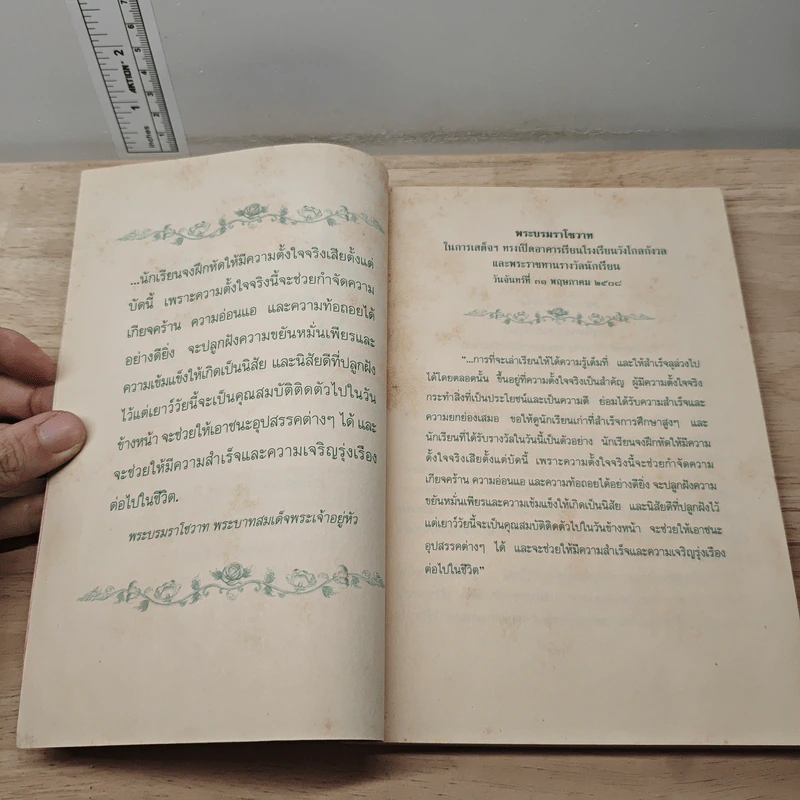 ...นักเรียนจงฝึกหัดให้มีความตั้งใจจริงเสียตั้งแต่
บัดนี้ เพราะความตั้งใจจริงนี้จะช่วยกำจัดความ
เกียจคร้าน ความอ่อนแอ และความท้อถอยได้
อย่างดียิ่ง จะปลูกฝังความขยันหมั่นเพียรและ
ความเข้มแข็งให้เกิดเป็นนิสัย และนิสัยดีที่ปลูกฝัง
ไว้แต่เยาว์วัยนี้จะเป็นคุณสมบัติติดตัวไปในวัน
ข้างหน้า จะช่วยให้เอาชนะอุปสรรคต่างๆ ได้ และ
จะช่วยให้มีความสำเร็จและความเจริญรุ่งเรือง
ต่อไปในชีวิต.
พระบรมราโชวาท พระบาทสมเด็จพระเจ้าอยู่หัว
พระบรมราโชวาท
ในการเสด็จฯ ทรงเปิดอาคารเรียนโรงเรียนวังไกลกังวล
และพระราชทานรางวัลนักเรียน
วันจันทร์ที่ ๓๑ พฤษภาคม ๒๕๐๘
"...การที่จะเล่าเรียนให้ได้ความรู้เต็มที่ และให้สำเร็จลุล่วงไป
ได้โดยตลอดนั้น ขึ้นอยู่ที่ความตั้งใจจริงเป็นสำคัญ ผู้มีความตั้งใจจริง
กระทำสิ่งที่เป็นประโยชน์และเป็นความดี ย่อมได้รับความสำเร็จและ
ความยกย่องเสมอ ขอให้ดูนักเรียนเก่าที่สำเร็จการศึกษาสูงๆ และ
นักเรียนที่ได้รับรางวัลในวันนี้เป็นตัวอย่าง นักเรียนจงฝึกหัดให้มีความ
ตั้งใจจริงเสียตั้งแต่บัดนี้ เพราะความตั้งใจจริงนี้จะช่วยกำจัดความ
เกียจคร้าน ความอ่อนแอ และความท้อถอยได้อย่างดียิ่ง จะปลูกฝังความ
ขยันหมั่นเพียรและความเข้มแข็งให้เกิดเป็นนิสัย และนิสัยดีที่ปลูกฝังไว้
แต่เยาว์วัยนี้จะเป็นคุณสมบัติติดตัวไปในวันข้างหน้า จะช่วยให้เอาชนะ
อุปสรรคต่างๆ ได้ และจะช่วยให้มีความสำเร็จและความเจริญรุ่งเรือง
ต่อไปในชีวิต"
inches 1 AKTION 2